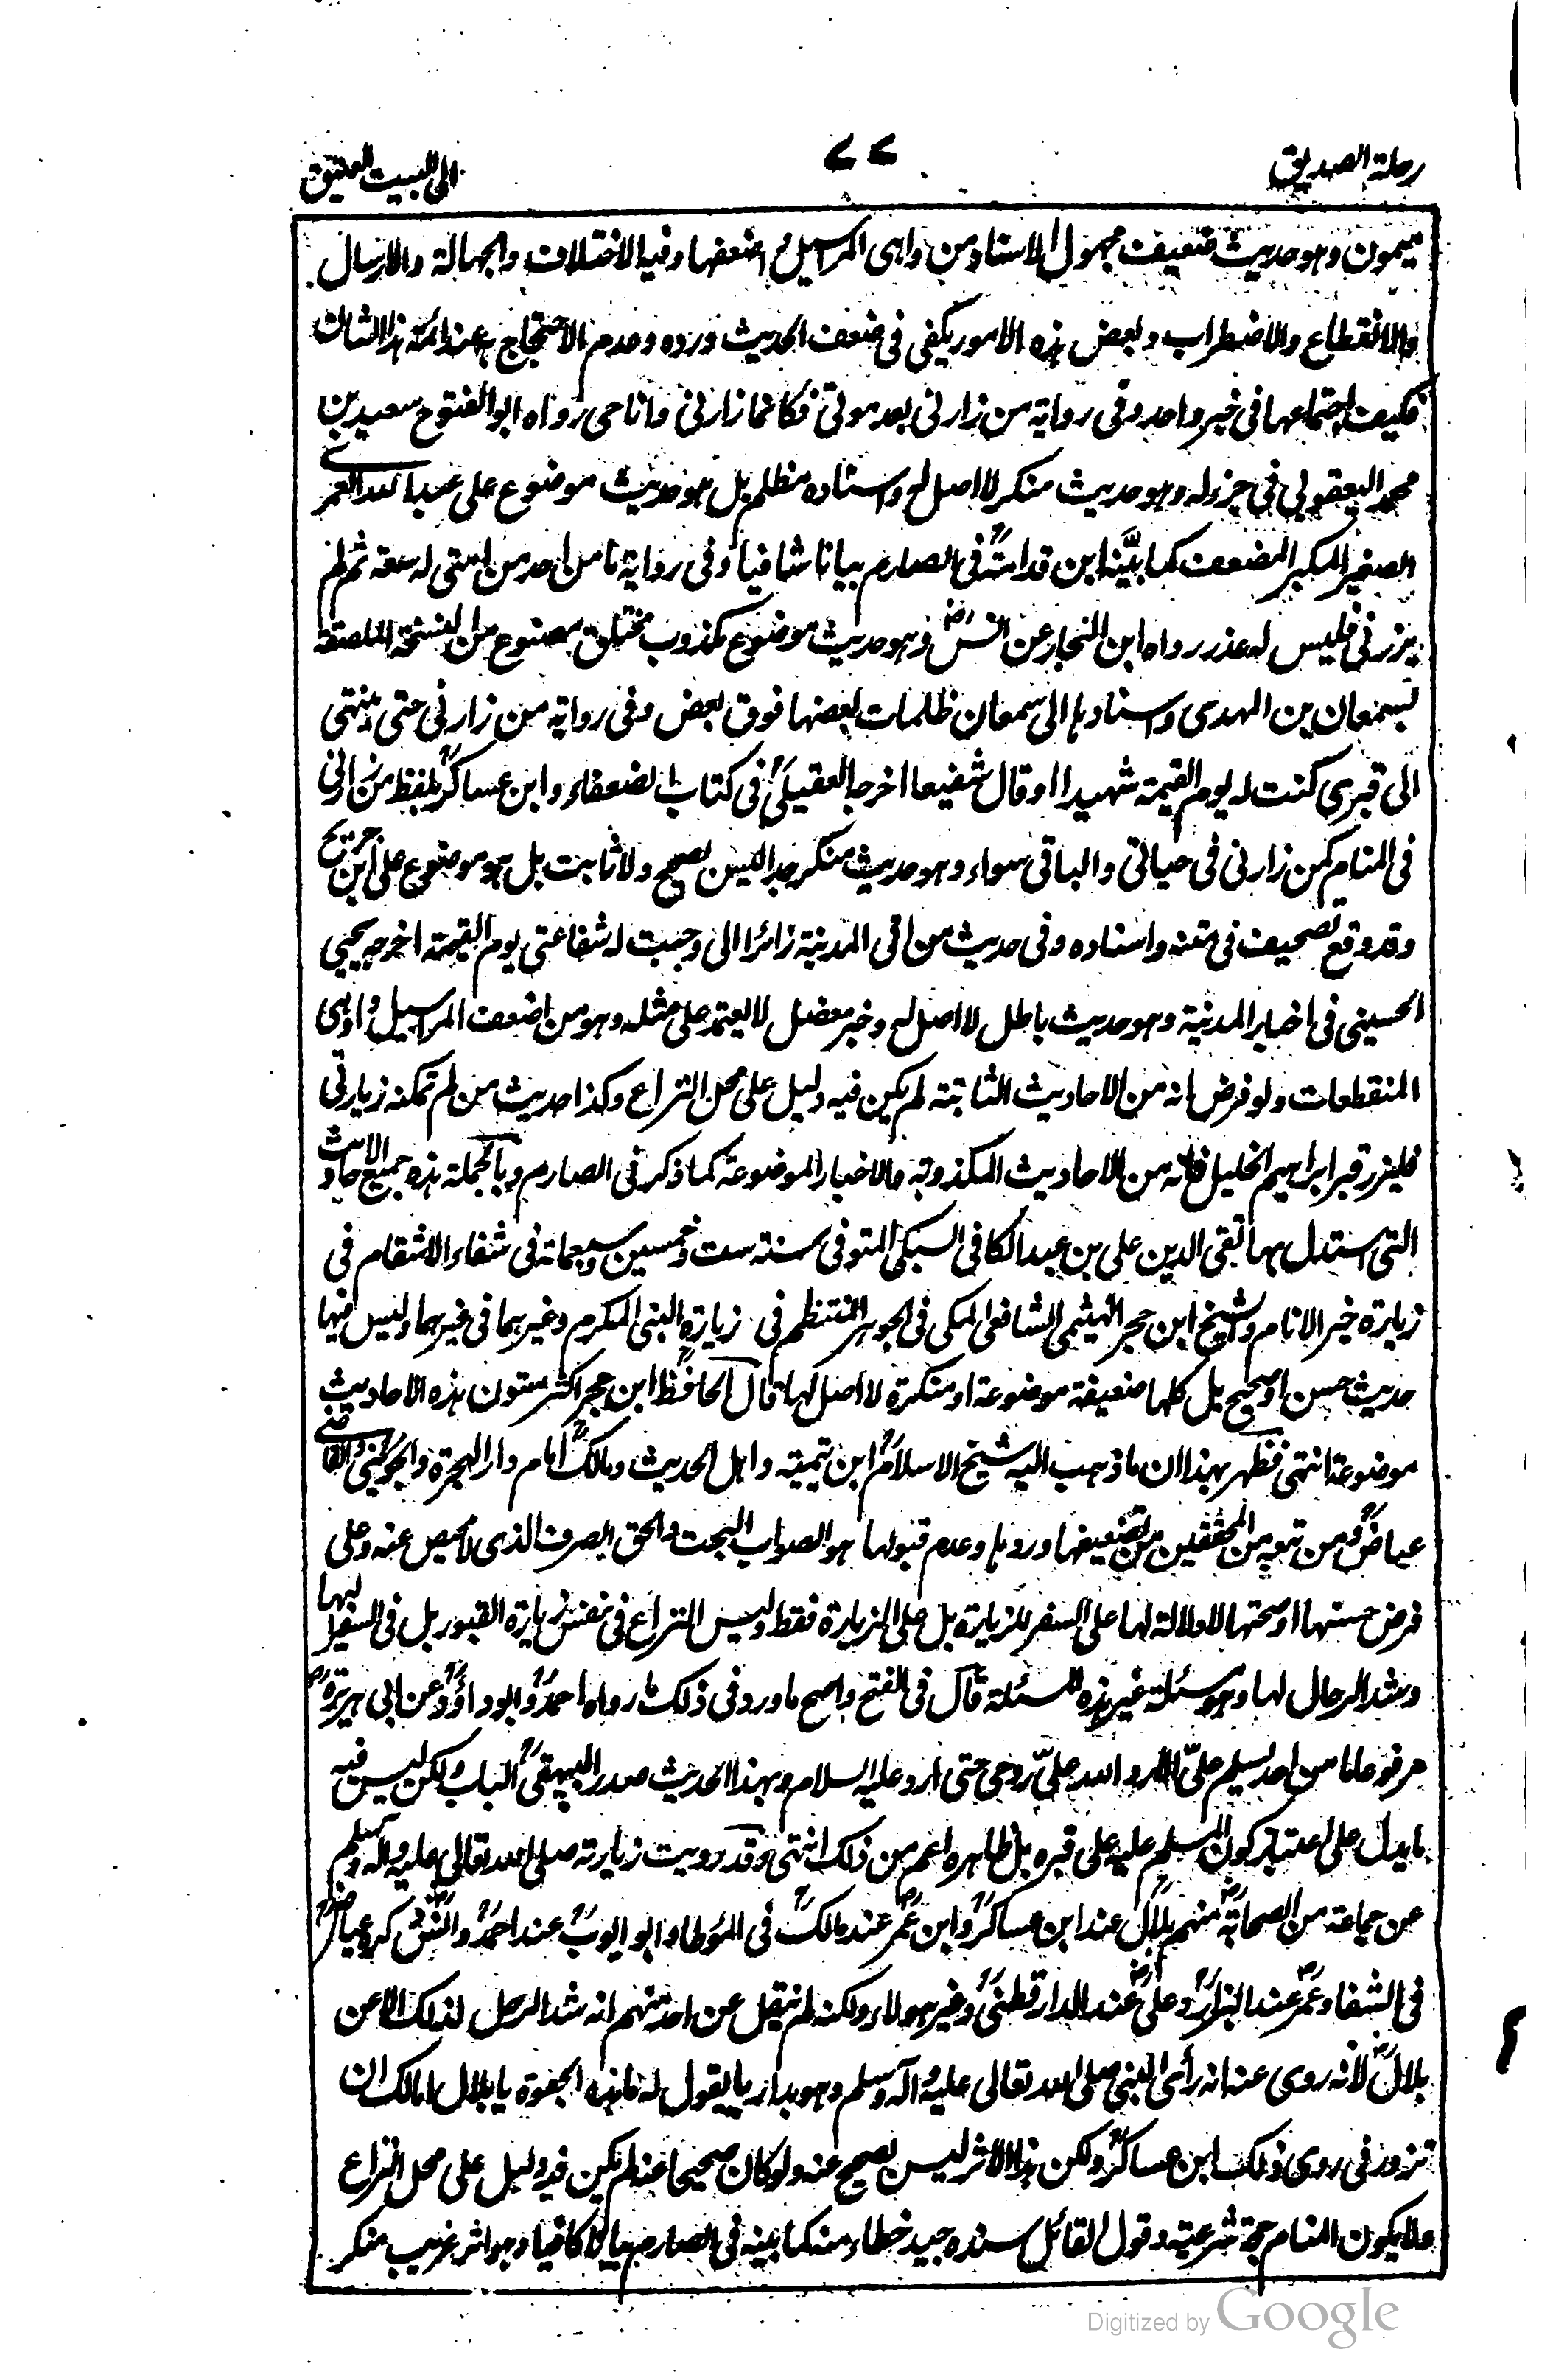 رحلة الصديق
٧٧
الى البيت العتيق
ميمون وهو حديث ضعيف مجهول الاسناد ومن واهى المراسيل واضعفها وفيه الاختلاف والجهالة والارسال
والانقطاع والاضطراب وبعض هذه الامور يكفى فى ضعف الحديث ورده وعدم الاحتجاج به عند ائمة هذا الشان
فكيف باجتماعها فى خبر واحد وفى رواية من زارنى بعد موتى فكانما زارنى وانا حى رواه ابو الفتوح سعيد بن
محمد اليعقوبى فى جزء له وهو حديث منكر لا اصل له واسناده مظلم بل هو حديث موضوع على عبد الله العمرے
الصغير المكبر المضعف كما بيّنه ابن قدامةؒ فى الصارم بيانا شافيا وفى رواية ما من احد من امتى له سعة ثم لم
يزرنى فليس له عذر رواه ابن النجار عن انسؓ وهو حديث موضوع مكذوب مختلق مصنوع من النسخة الملصقة
بسمعان بن المهدى واسنادها الى سمعان ظلمات بعضها فوق بعض وفى رواية من زارنى حتى ينتهى
الى قبرى كنت له يوم القيمة شهيدا او قال شفيعا اخرجه العقيلىؒ فى كتاب الضعفاء وابن عساكرؒ بلفظ من رانى
فى المنام كمن زارنى فى حياتى والباقى سواء وهو حديث منكر جدا ليس بصحيح ولا ثابت بل هو موضوع على ابن جريج
وقد وقع تصحيف فى متنه واسناده وفى حديث من اتى المدينة زائرا الى وجبت له شفاعتى يوم القيمة اخرجه يحيى
الحسينى فى اخبار المدينة وهو حديث باطل لا اصل له وخبر معضل لا يعتمد على مثله وهو من اضعف المراسيل واوهى
المنقطعات ولو فرض انه من الاحاديث الثابتة لم يكن فيه دليل على محل النزاع وكذا حديث من لم تمكنه زيارتى
فليزر قبر ابراهيم الخليل فانه من الاحاديث المكذوبة والاخبار الموضوعة كما ذكر فى الصارم وبالجملة هذه جميع الاحاديث
التى استدل بها تقى الدين على بن عبد الكافى السبكى المتوفى سنة ست وخمسين وسبعمائة فى شفاء الاسقام فى
زيارة خير الانام والشيخ ابن حجر الهيثمى الشافعى المكى فى الجوهر المنتظم فى زيارة النبى المكرم وغيرهما فى غيرهما وليس فيها
حديث حسن او صحيح بل كلها ضعيفة موضوعة او منكرة لا اصل لها قال الحافظؒ ابن حجر اكثر متون هذه الاحاديث
موضوعة انتهى فظهر بهذا ان ما ذهب اليه شيخ الاسلامؒ ابن تيمية واهل الحديث ومالكؒ امام دار الهجرة والجوينىؒ والقاضے
عياضؒ ومن تبعه من المحققين من تضعيفها وردها وعدم قبولها هو الصواب البحت والحق الصرف الذى لا محيص عنه وعلى
فرض حسنها او صحتها لا دلالة لها على السفر للزيارة بل على الزيارة فقط وليس النزاع فى نفس زيارة القبور بل فى السفر اليها
وشد الرحال لها وهو مسئلة غير هذه المسئلة قال فى الفتح واصح ما ورد فى ذلك ما رواه احمدؒ وابو داؤدؒ عن ابى هريرةؓ
مرفوعا ما من احد يسلم علىّ الا رد الله علىّ روحى حتى ارد عليه السلام وبهذا الحديث صدر البيهقىؒ الباب ولكن ليس فيه
ما يدل على اعتبار كون المسلم عليه على قبره بل ظاهره اعم من ذلك انتهى وقد رويت زيارته صلى الله تعالى عليه وآله وسلم
عن جماعة من الصحابةؓ منهم بلالؓ عند ابن عساكرؒ وابن عمرؓ عند مالكؒ فى المؤطا وابو ايوبؓ عند احمدؒ وانسؓ ذكره عياضؒ
فى الشفا وعمرؓ عند البزارؒ وعلىؓ عند الدارقطنىؒ وغير هولاء ولكنه لم ينقل عن احد منهم انه شد الرحل لذلك الا عن
بلالؓ لانه روى عنه انه رأى النبى صلى الله تعالى عليه وآله وسلم وهو بداريا يقول له ما هذه الجفوة يا بلال اما لك ان
تزورنى روى ذلك ابن عساكرؒ ولكن هذا الاثر ليس بصحيح عنه ولو كان صحيحا عنه لم يكن فيه دليل على محل النزاع
ولا يكون المنام حجة شرعية وقول القائل سنده جيد خطاء منه كما بينه فى الصارم بيانا كافيا وهو اثر غريب منكر
Digitized by Google